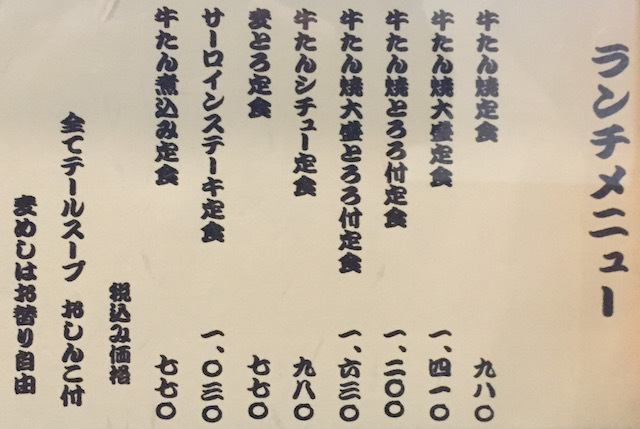 ランチメニュー
牛たん焼定食 九八〇
牛たん焼大盛定食 一、四一〇
牛たん焼とろろ付定食 一、二〇〇
牛たん焼大盛とろろ付定食 一、六三〇
牛たんシチュー定食 九八〇
麦とろ定食 七七〇
サーロインステーキ定食 一、〇三〇
牛たん煮込み定食 七七〇
税込み価格
全てテールスープ おしんこ付
麦めしはお替り自由